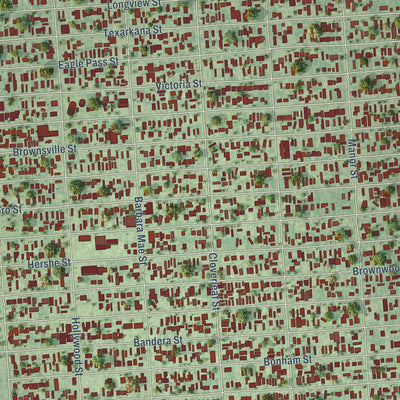 Longview St
Texarkana St
Eagle Pass St
Victoria St
Brownsville St
Manor St
Barbara Mae St
Hershe St
Cloverleaf St
Brownwood
Hollywood St
Bandera St
Bonham St